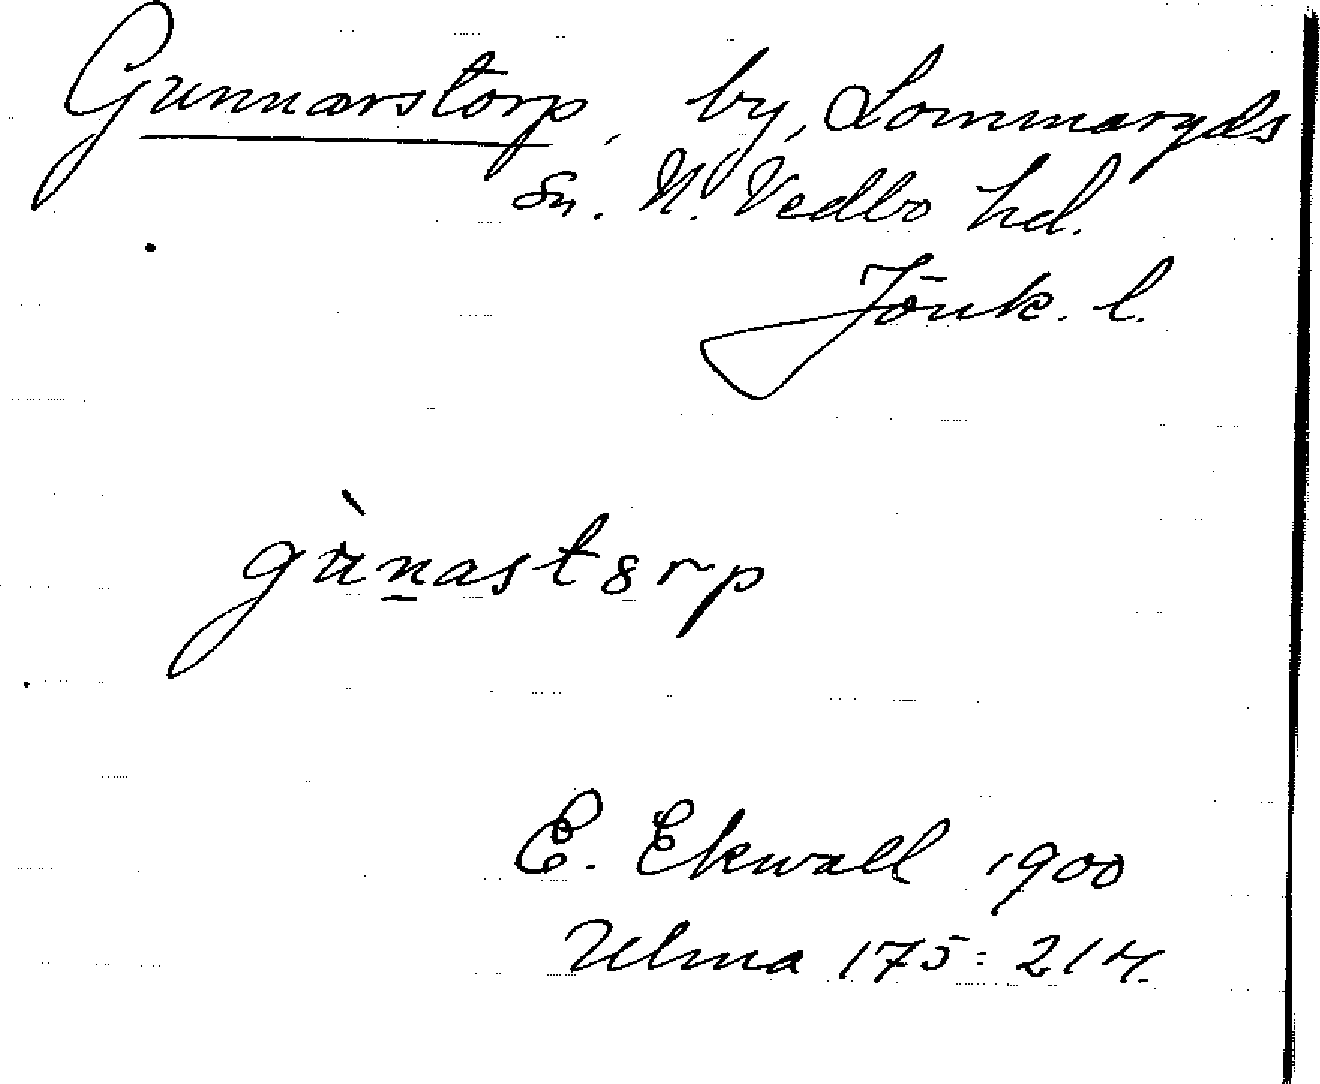 Gunnarstorp, by, Lommaryds
Sn. N. Vedbo hd.
Jönk. l.
gu̇̀n̲ast8rp
E. Ekwall 1900
Ulma 175: 214.